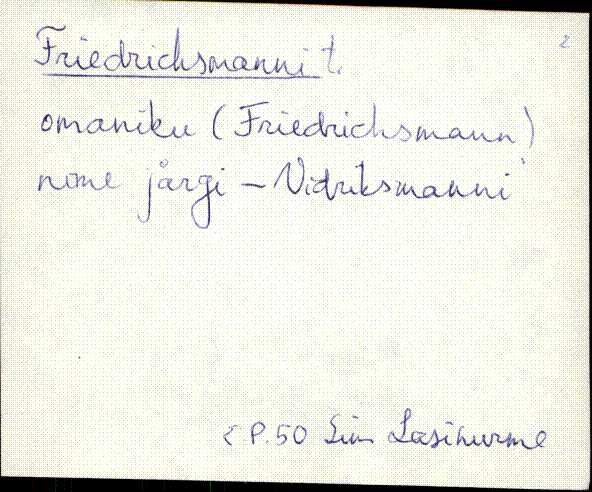 2
Friedrichsmanni t.
omaniku (Friedrichsmann)
nime järgi – Vidriksmanni
< P.50 Sim Lasinurme